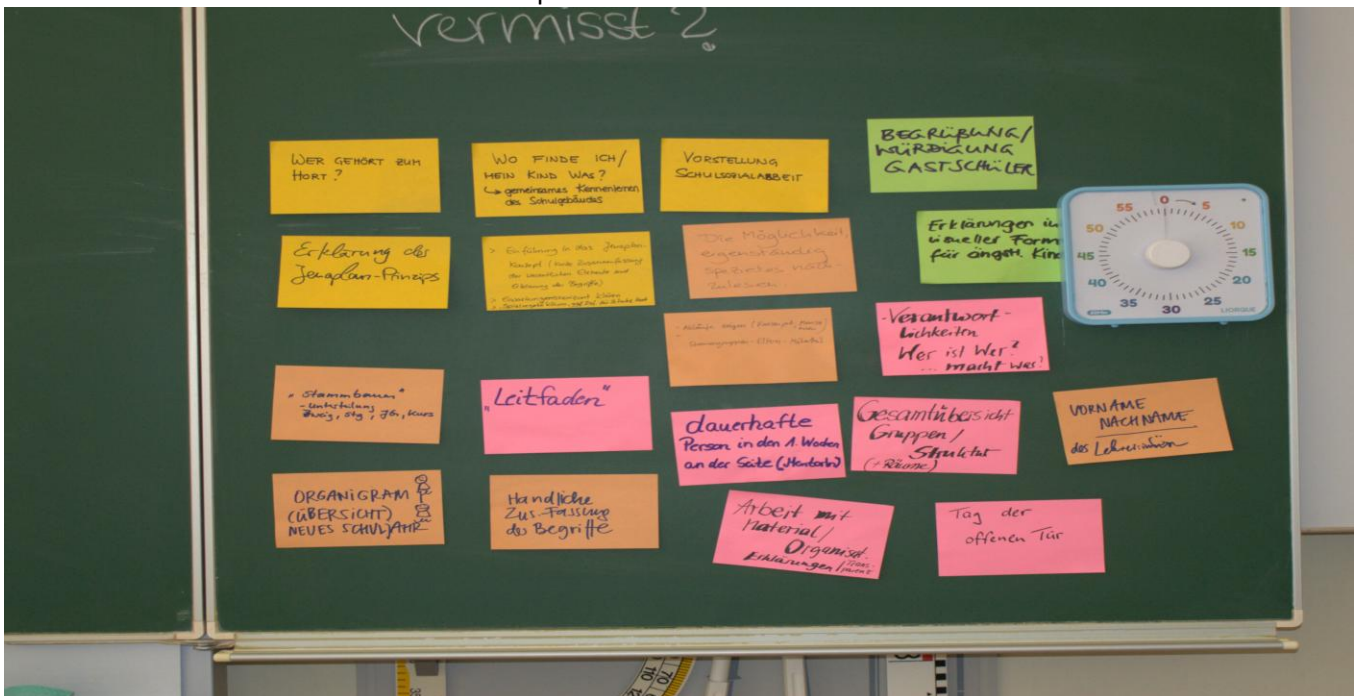 vermisst?
WER GEHÖRT ZUM
HORT?
WO FINDE ICH/
MEIN KIND WAS?
↳ gemeinsames Kennenlernen
des Schulgebäudes
VORSTELLUNG
SCHULSOZIALARBEIT
BEGRÜßUNG/
WÜRDIGUNG
GASTSCHÜLER
Erklärung des
Jenaplan-Prinzips
> Einführung in das Jenaplan-
Konzept (
der wesentlichen und
Erklärung der Begriffe)
Die Möglichkeit,
eigenständig
spezielles nach-
zulesen.
Erklärungen in
visueller Form
für ängstl. Kind
55 0 5
50 10
45 15
40 20
35 30 25
- Verantwort-
lichkeiten
Wer ist Wer?
... macht was?
"Stammbaum"
- Unterteilung
Zweig, Stg, Jh, Kurs
"Leitfaden"
dauerhafte
Person in den 1. Wochen
an der Seite (MentorIn)
Gesamtübersicht
Gruppen/
Struktur
(+ Räume)
VORNAME
NACHNAME
des Lehrers
ORGANIGRAM
(ÜBERSICHT)
NEUES SCHULJAHR
Handliche
Zus.-Fassung
der Begriffe
Arbeit mit
Material/
Organisat.
Erklärungen/
Tag der
offenen Tür